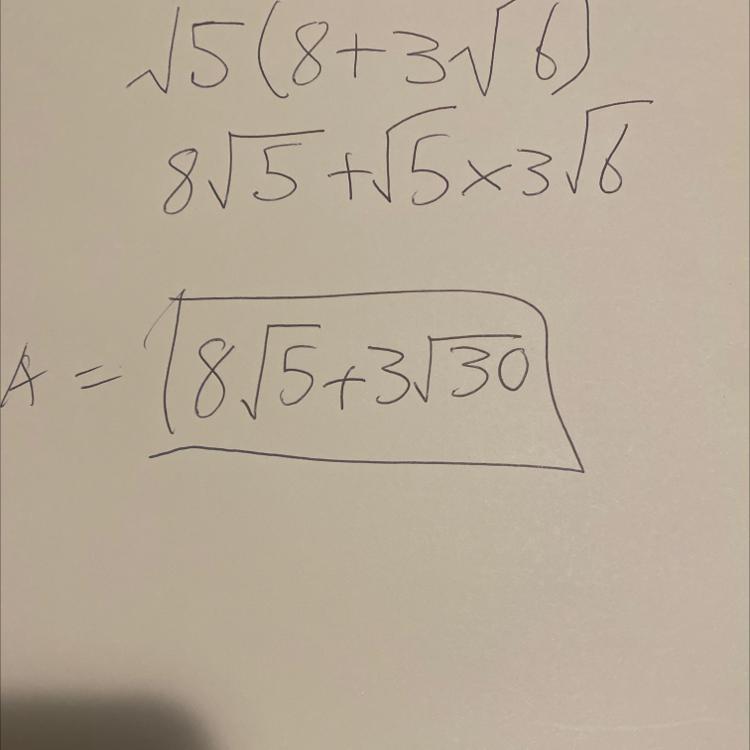 √5(8+3√6)
8√5+√5×3√6
A = 8√5+3√30